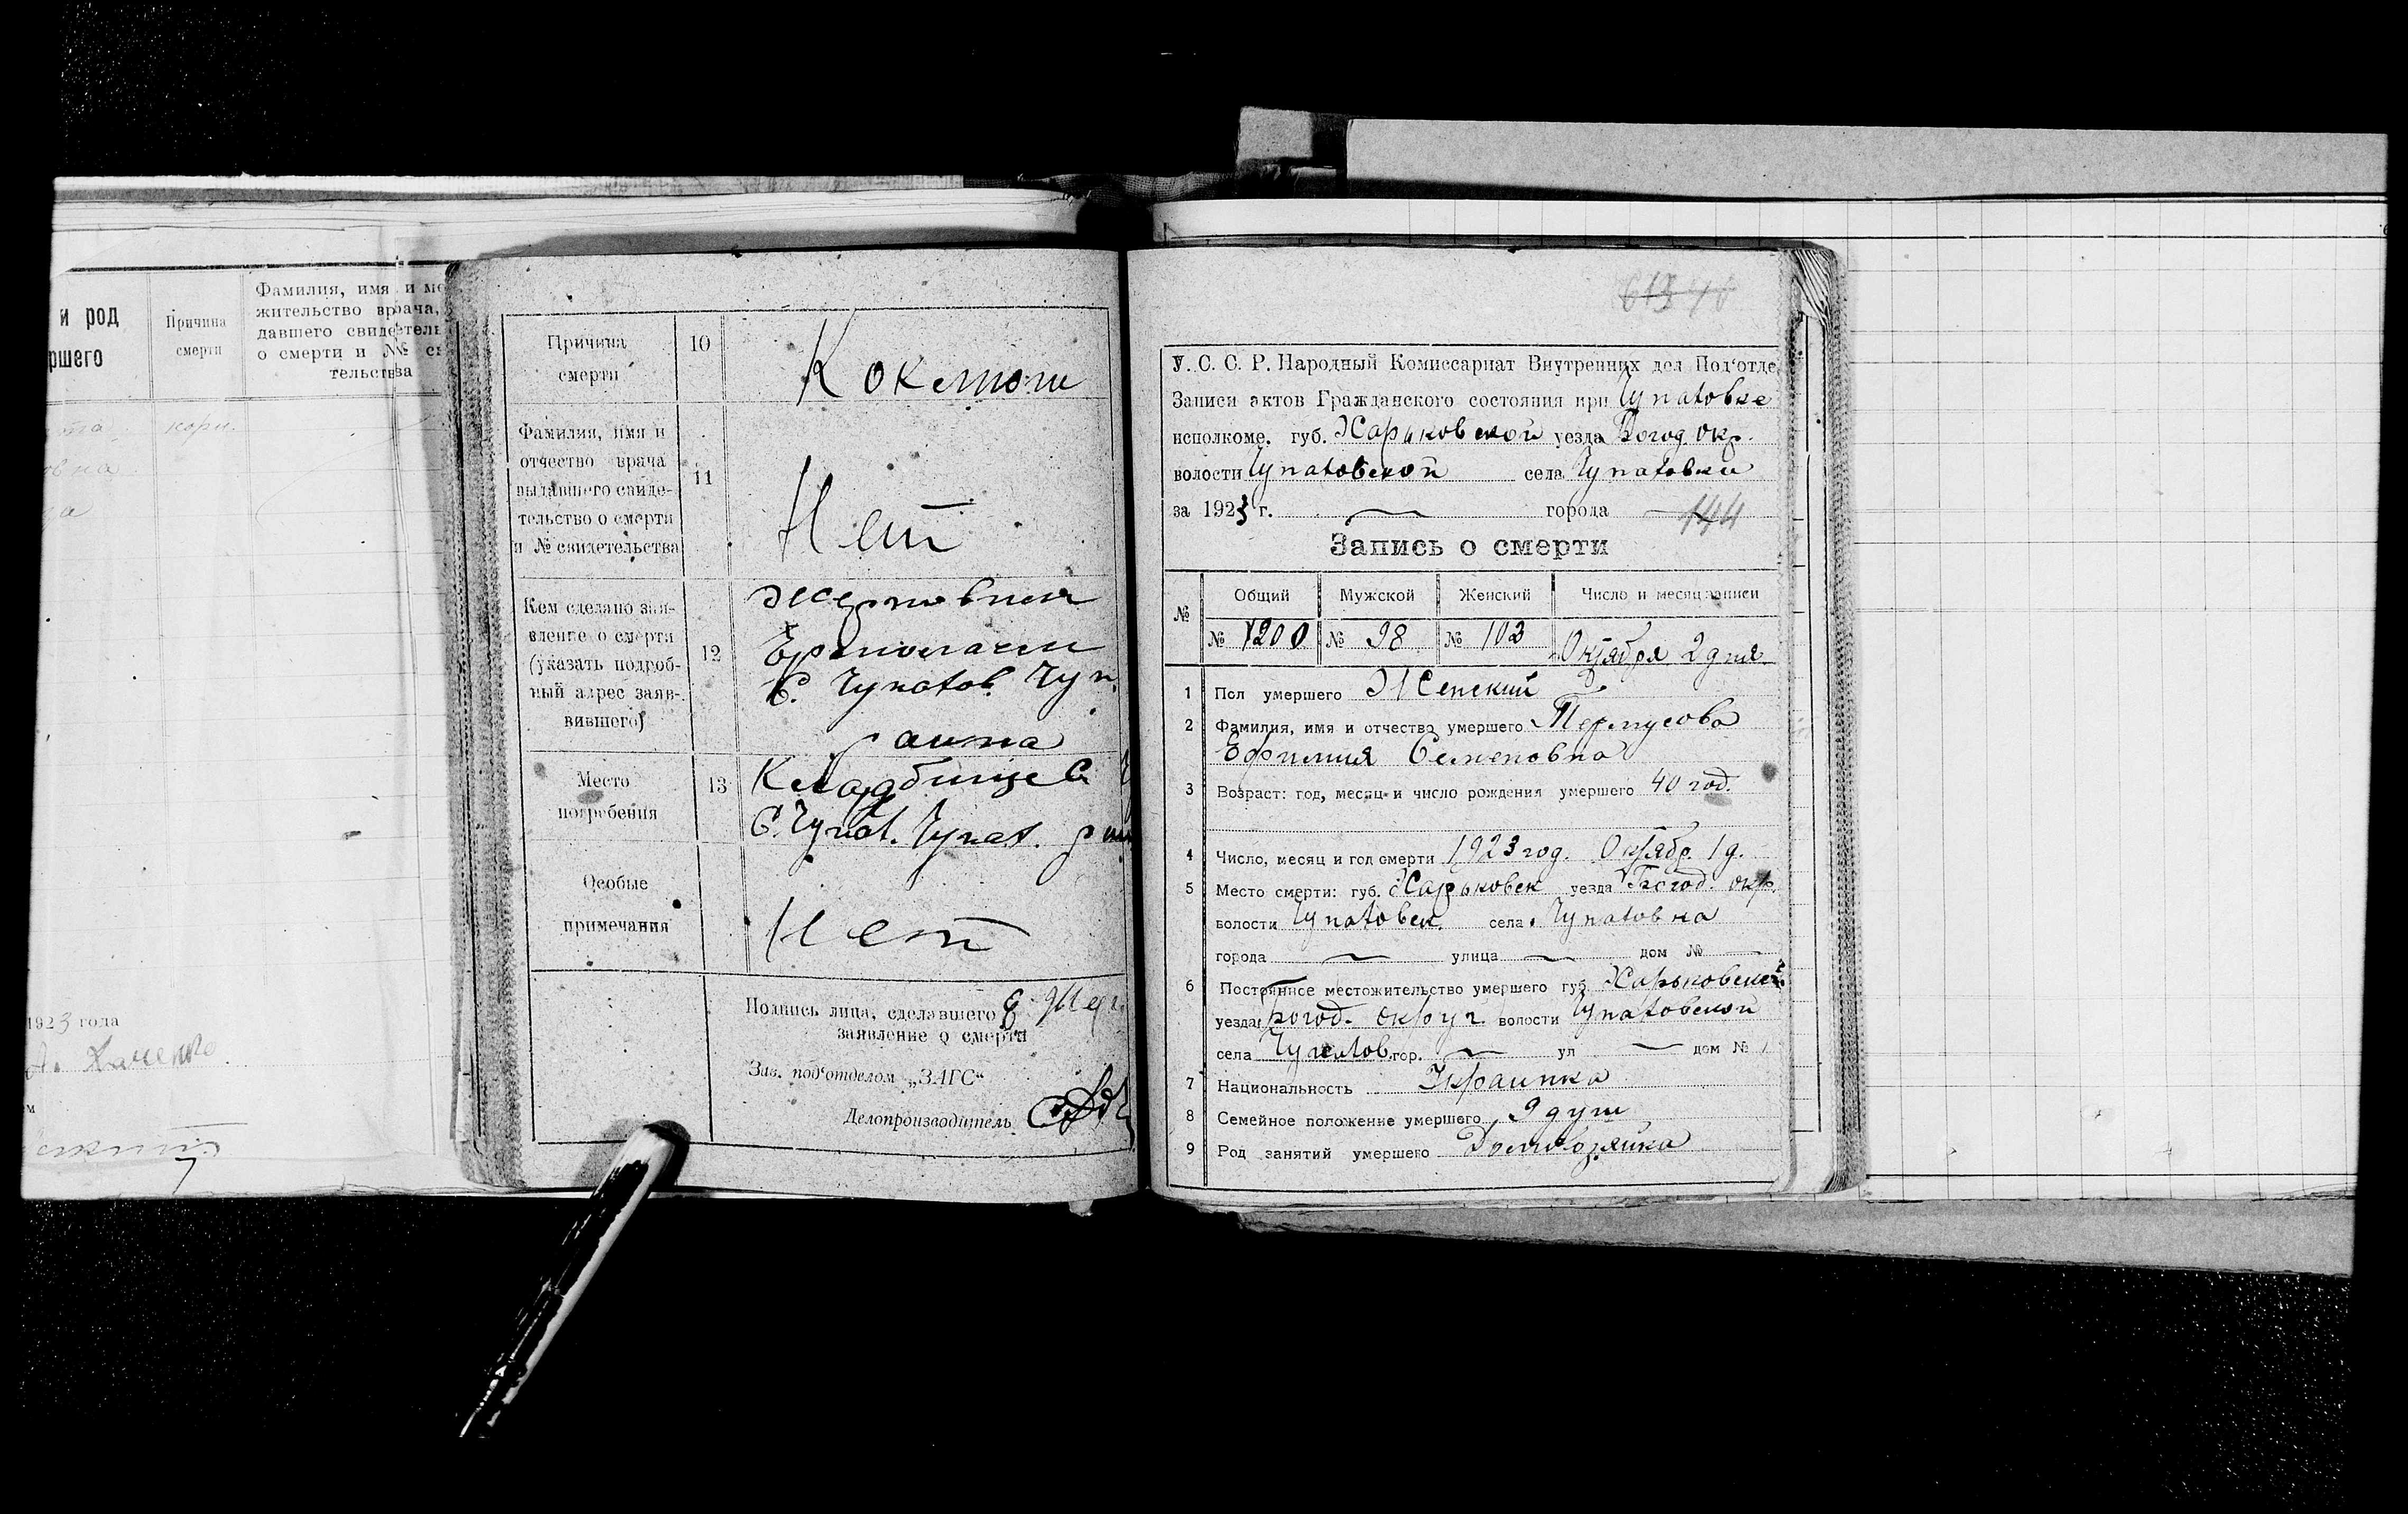 и род
ршего
Причина
смерти
Фамилия, имя и ме
жительство врача,
давшего свидетель
о смерти и №№ св
тельства
кори.
овна
1923 года
Причина
смерти
10
Фамилия, имя и
отчество врача
выдавшего свиде-
тельство о смерти
и № свидетельства
11
Нет
Кем сделано заи-
вление о смерти
(указать подроб-
ный адрес заяв-
вившего)
12
С. Чупатов. Чуп.
Место
погребения
13
Кладбище С. Ч
С. Чупат. Чупат.
Особые
примечания
Нет
Подпись лица, сделавшего
заявление о смерти
Зав. под'отделом „ЗАГС“
Делопроизводитель
У. С. С. Р. Народный Комиссариат Внутренних дел Под'отде
Записи актов Гражданского состояния при Чупатовке
исполкоме. губ. Харьковской уезда Богод. окр.
волости Чупатовской села Чупатовки
за 1923 г. города 144
Запись о смерти
№ Общий Мужской Женский Число и месяц записи
№ 1200 № 98 № 103 Октября 2 дня
1 Пол умершего Женский
2 Фамилия, имя и отчество умершего
Ефимия Семеновна
3 Возраст: год, месяц и число рождения умершего 40 год.
4 Число, месяц и год смерти 1923 год. Октябр. 1 д.
5 Место смерти: губ. Харьковск уезда Богод. окр.
волости Чупатовск. села Чупатовка
города улица дом №
6 Постоянное местожительство умершего губ. Харьковской
уезда Богод. округ. волости Чупатовской
села Чупатов. гор. ул дом №
7 Национальность Украинка
8 Семейное положение умершего 9 душ
9 Род занятий умершего Домохозяйка